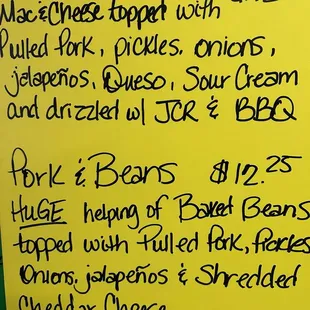 Mac & Cheese topped with
Pulled Pork, pickles, onions,
jalapeños, Queso, Sour Cream
and drizzled w/ JCR & BBQ
Pork & Beans $12.25
HUGE helping of Baked Beans
topped with Pulled Pork, Pickles
Onions, jalapeños & Shredded
Cheddar Cheese